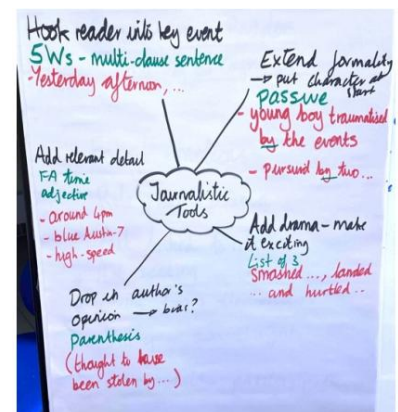 Hook reader into key event
5Ws - multi-clause sentence
- Yesterday afternoon, ...
Extend formality
→ put character at
start
passive
- young boy traumatised
by the events
- pursued by two...
Add relevant detail
FA time
adjective
- around 4pm
- blue Austin-7
- high-speed
Journalistic
Tools
Add drama - make
it exciting
List of 3
Smashed ..., landed
... and hurtled ..
Drop in author's
opinion → bias?
Parenthesis
(thought to have
been stolen by ...)